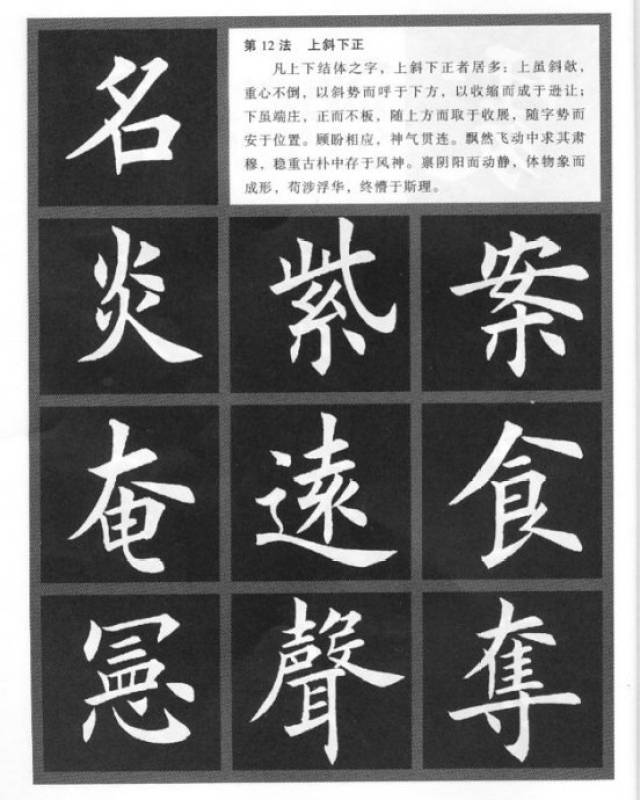 名
第12法 上斜下正
凡上下结体之字，上斜下正者居多：上虽斜欹，
重心不倒，以斜势而呼于下方，以收缩而成于逊让；
下虽端庄，正而不板，随上方而取于收展，随字势而
安于位置。顾盼相应，神气贯连。飘然飞动中求其肃
穆，稳重古朴中存于风神。禀阴阳而动静，体物象而
成形，苟涉浮华，终懵于斯理。
炎 紫 案
奄 遠 食
聲 奪